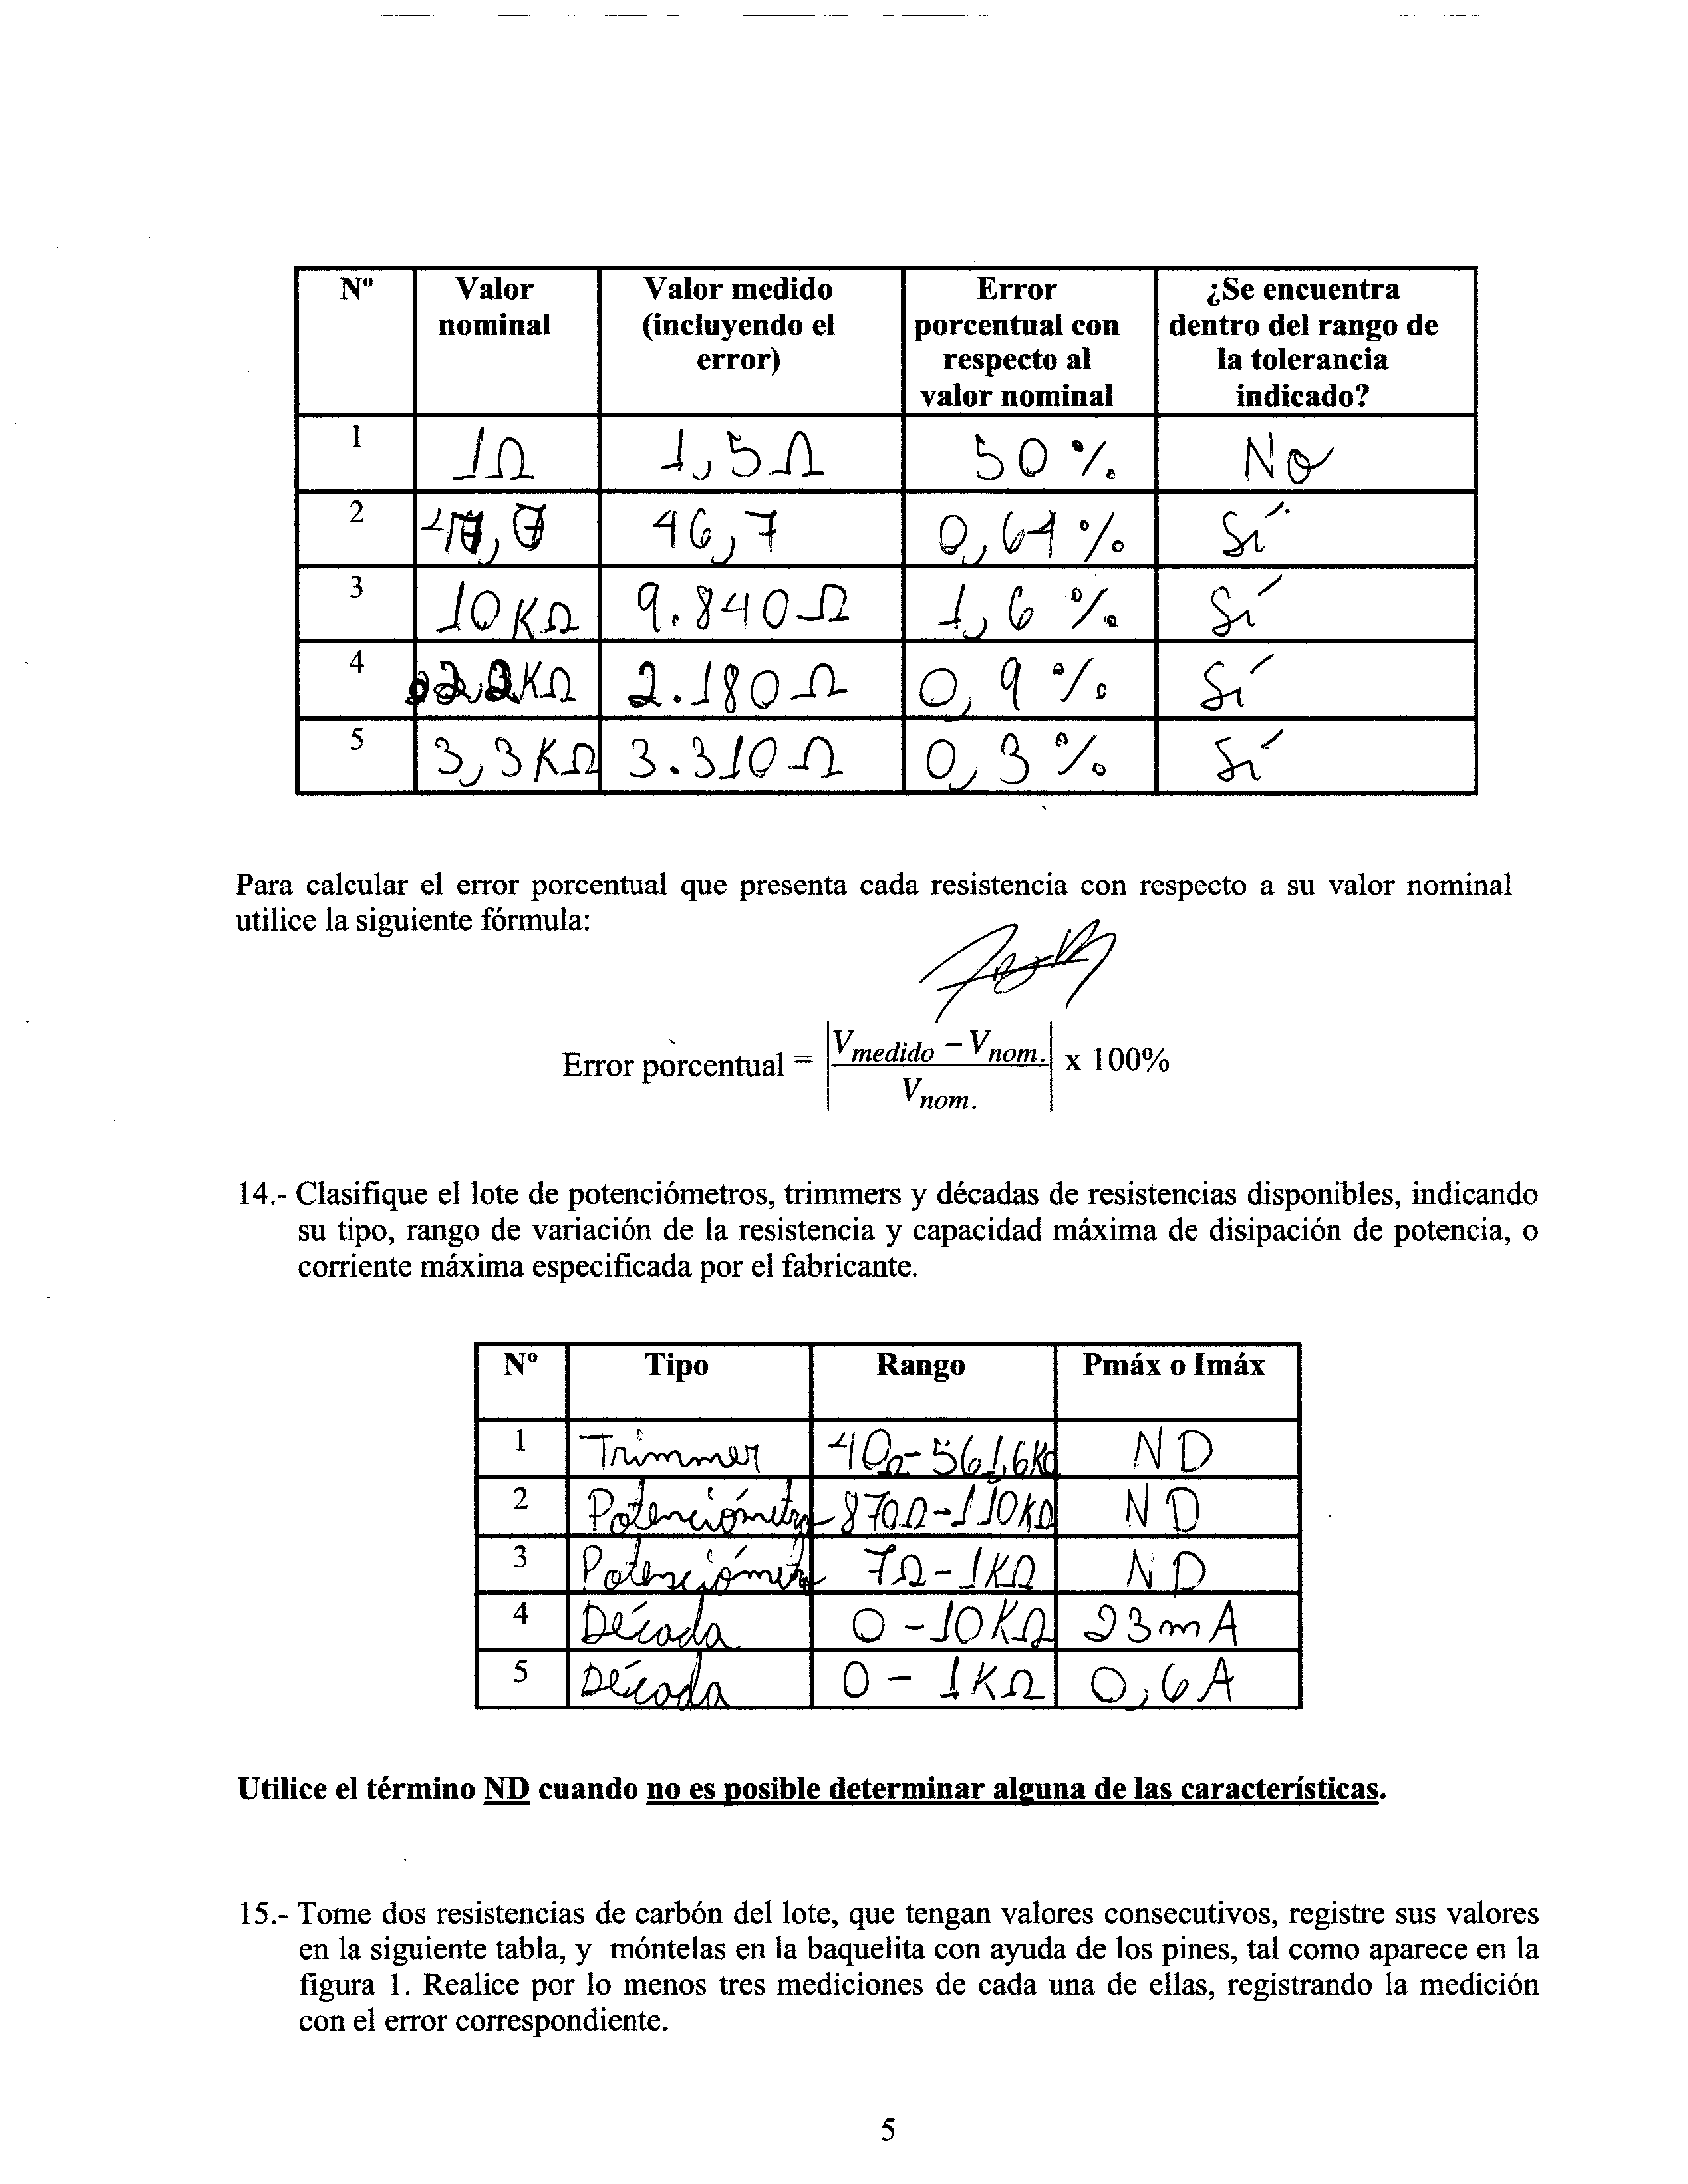 Nº Valor nominal Valor medido (incluyendo el error) Error porcentual con respecto al valor nominal ¿Se encuentra dentro del rango de la tolerancia indicado?
1 1Ω 1,5Ω 50% No
2 46,7 0,64% Sí
3 10KΩ 9.840Ω 1,6% Sí
4 2,2KΩ 2.180Ω 0,9% Sí
5 3,3KΩ 3.310Ω 0,3% Sí
Para calcular el error porcentual que presenta cada resistencia con respecto a su valor nominal
utilice la siguiente fórmula:
Error porcentual = |(Vmedido − Vnom.) / Vnom.| x 100%
14.- Clasifique el lote de potenciómetros, trimmers y décadas de resistencias disponibles, indicando
su tipo, rango de variación de la resistencia y capacidad máxima de disipación de potencia, o
corriente máxima especificada por el fabricante.
Nº Tipo Rango Pmáx o Imáx
1 Trimmer 40Ω-561,6KΩ ND
2 Potenciómetro 870Ω-110KΩ ND
3 Potenciómetro 7Ω-1KΩ ND
4 Década 0-10KΩ 23mA
5 Década 0-1KΩ 0,6A
Utilice el término ND cuando no es posible determinar alguna de las características.
15.- Tome dos resistencias de carbón del lote, que tengan valores consecutivos, registre sus valores
en la siguiente tabla, y móntelas en la baquelita con ayuda de los pines, tal como aparece en la
figura 1. Realice por lo menos tres mediciones de cada una de ellas, registrando la medición
con el error correspondiente.
5